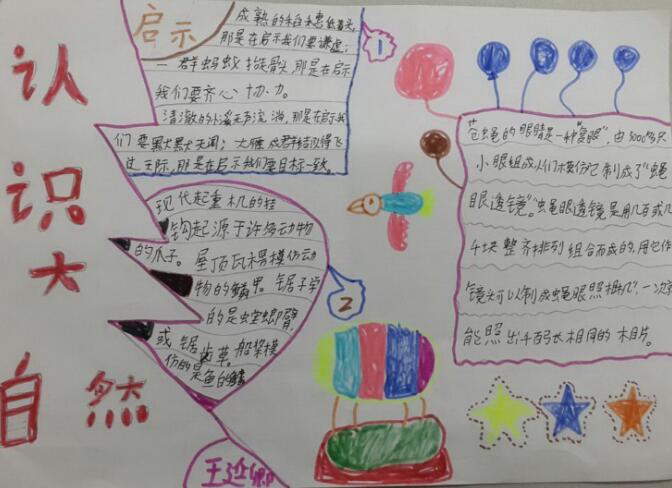 认
识
大
自然
启示
成熟的稻穗低着头,
那是在启示我们要谦虚;
一群蚂蚁抬骨头,那是在启示
我们要齐心协力。
清澈的小溪无声流淌,那是在启示我
们要默默无闻;大雁成群结队得飞
过天际,那是在启示我们要目标一致。
1
现代起重机的挂
钩起源于许多动物
的爪子。屋顶瓦楞模仿动
物的鳞甲。锯子学
的是螳螂臂,
或锯齿草。船桨模
仿的是鱼的鳍
2
苍蝇的眼睛是一种"复眼",由3000多只
小眼组成人们模仿它制成了"蝇
眼透镜"。"蝇眼透镜是用几百或几
千块整齐排列组合而成的,用它作
镜头可以制成蝇眼照相机",一次就
能照出千百张相同的相片。